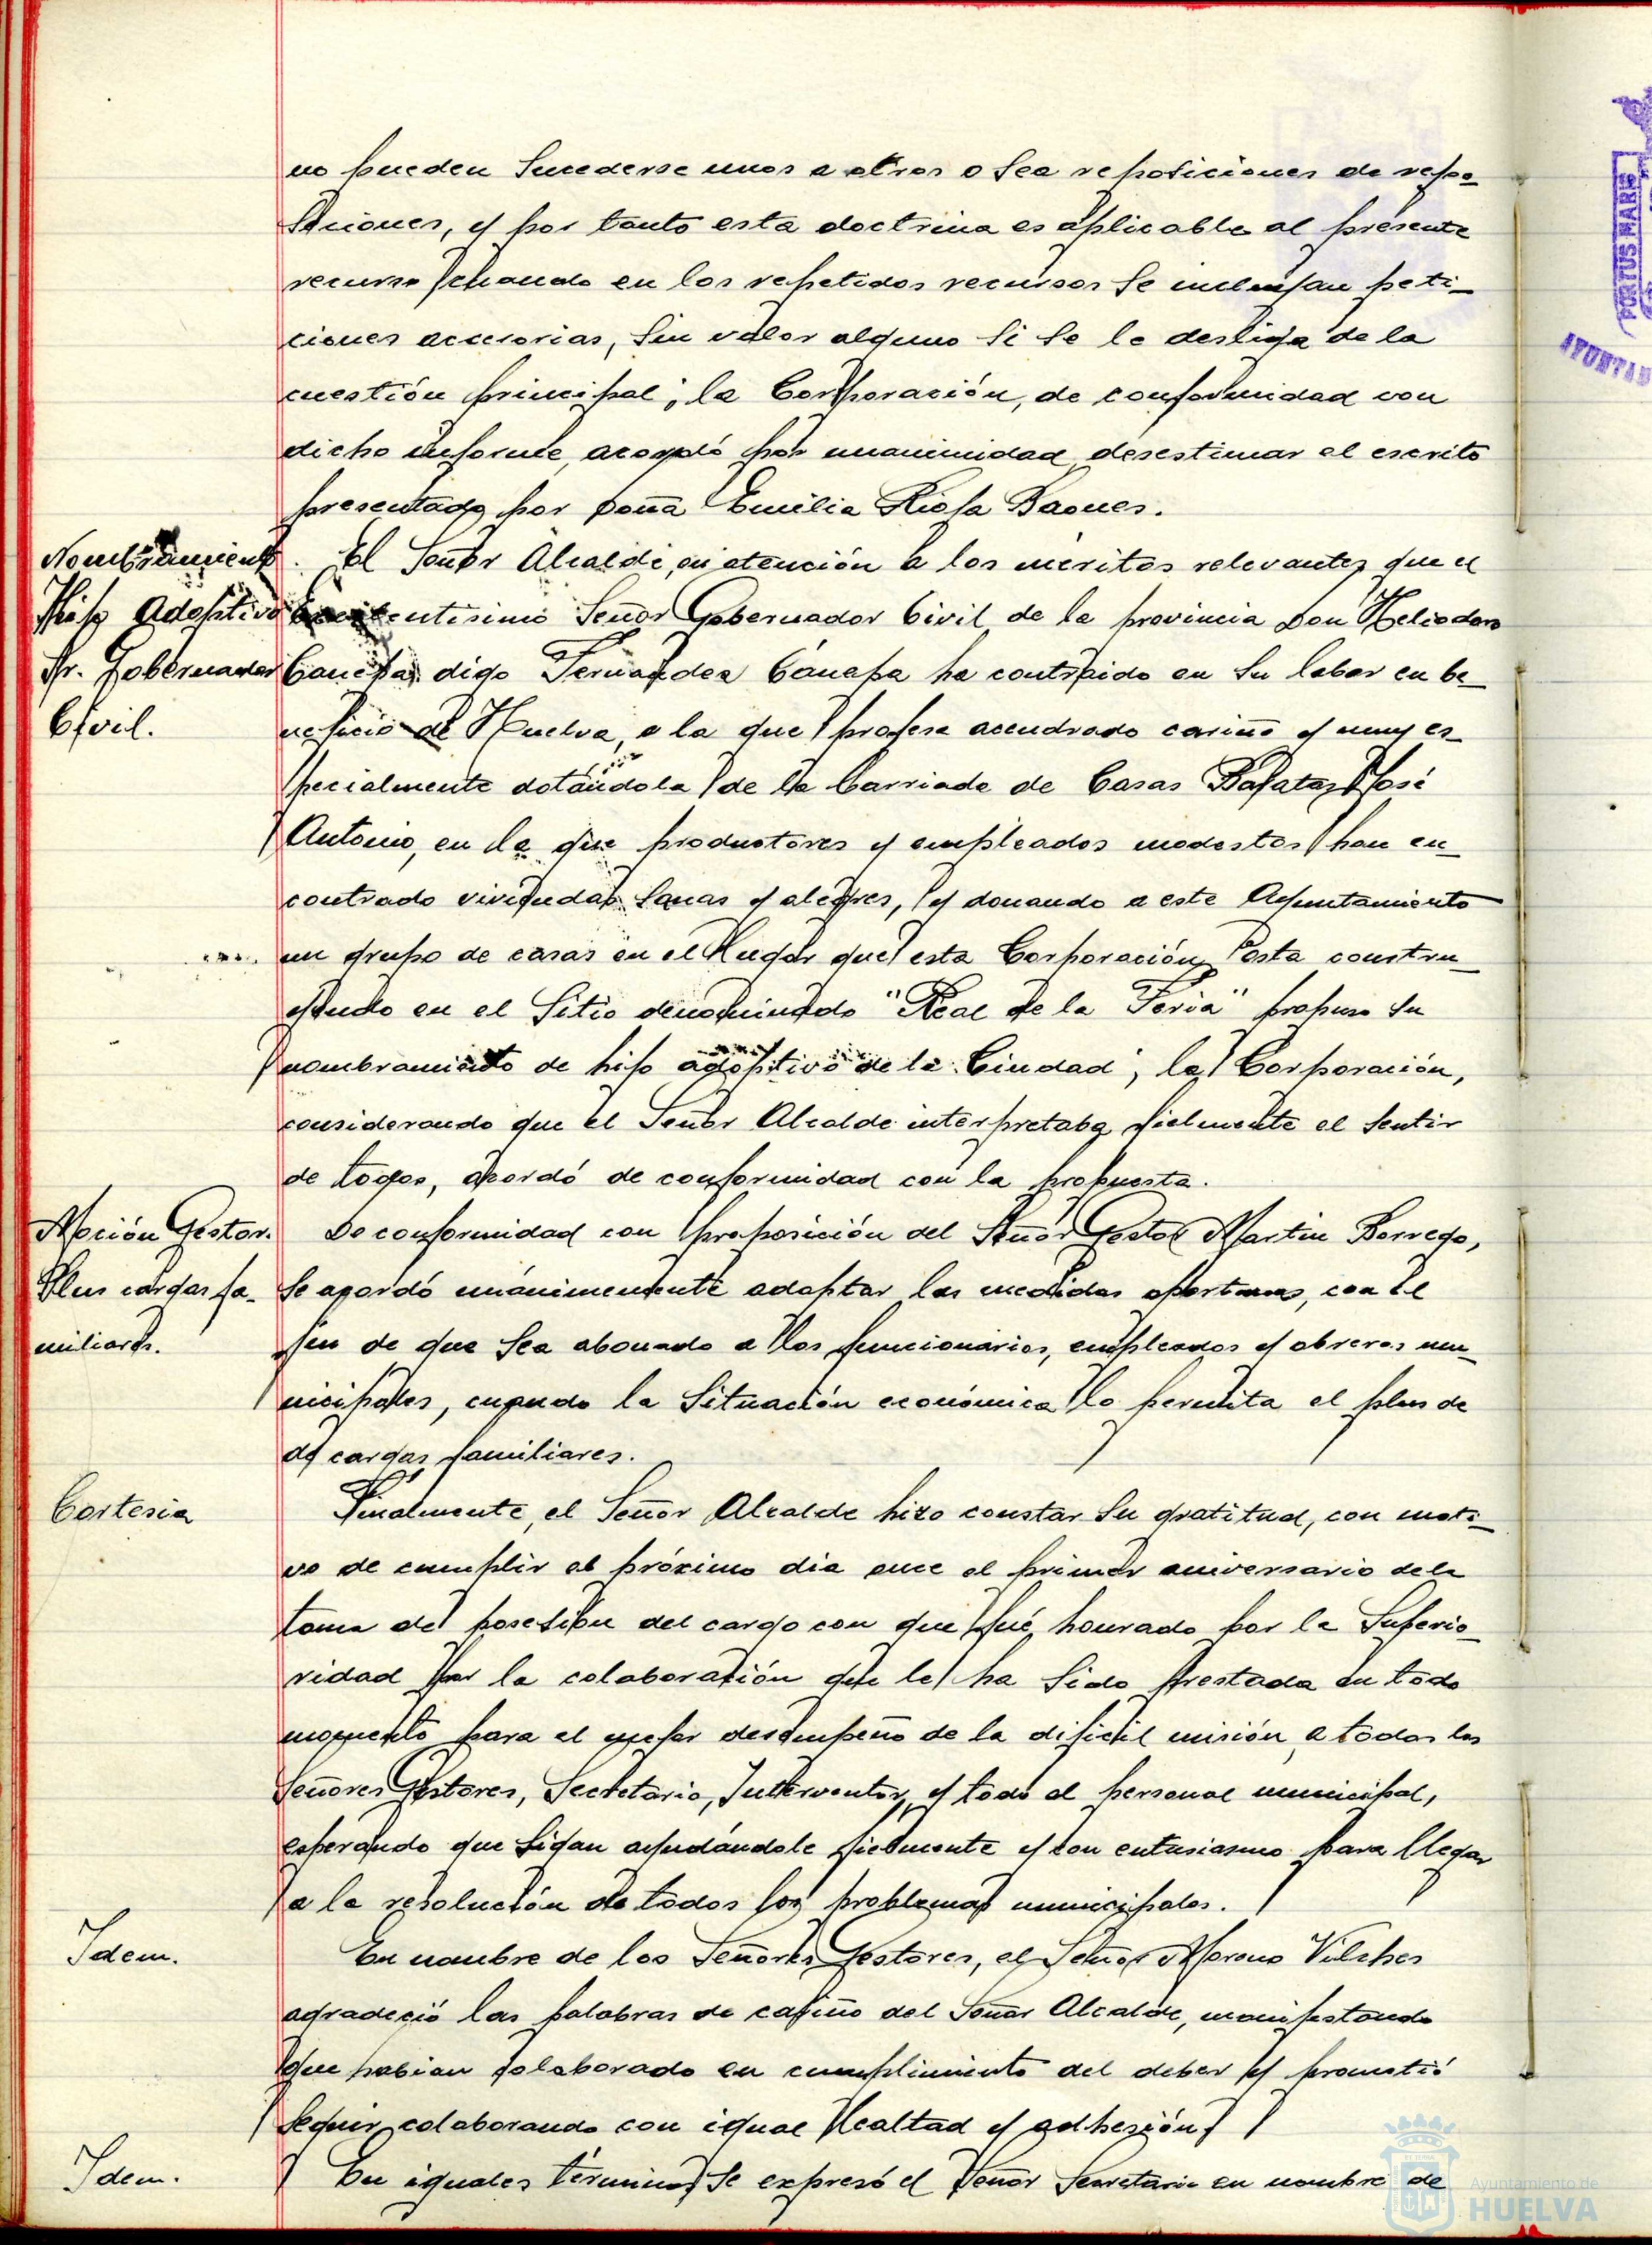 no pueden sucederse unos a otros o sea reposiciones de repo-
siciones, y por tanto esta doctrina es aplicable al presente
recurso cuando en los repetidos recursos se incluyan peti-
ciones accesorias, sin valor alguno si se le desliga de la
cuestión principal; la Corporación, de conformidad con
dicho informe, acordó por unanimidad desestimar el escrito
presentado por Doña Emilia
Nombramiento
Hijo Adoptivo
Sr. Gobernador
Civil.
El Señor Alcalde, en atención a los meritos relevantes que el
Excelentisimo Señor Gobernador Civil de la provincia Don Heliodoro
Canepa, digo Fernandez Canepa ha contraido en su labor en be-
neficio de Huelva, a la que profesa acendrado cariño y muy es-
pecialmente dotándola de la barriada de Casas Baratas José
Antonio, en la que productores y empleados modestos han en-
contrado viviendas sanas y alegres, y donando a este Ayuntamiento
un grupo de casas en el Hogar que esta Corporación esta constru-
yendo en el Sitio denominado "Real de la Feria" propuso su
nombramiento de hijo adoptivo de la Ciudad; la Corporación,
considerando que el Señor Alcalde interpretaba fielmente el sentir
de todos, acordó de conformidad con la propuesta.
Moción Gestor.
Plus cargas fa-
miliares.
De conformidad con proposición del Señor Gestor Martin Borrego,
se acordó unánimemente adoptar las medidas oportunas, con el
fin de que sea abonado a los funcionarios, empleados y obreros mu-
nicipales, cuando la situación económica lo permita el plus de
de cargas familiares.
Cortesia
Finalmente, el Señor Alcalde hizo constar su gratitud, con moti-
vo de cumplir el próximo dia once el primer aniversario de la
toma de posesión del cargo con que fué honrado por la Superio-
ridad por la colaboración que le ha sido prestada en todo
momento para el mejor desempeño de la dificil misión, a todos los
Señores Gestores, Secretario, Interventor, y todo el personal municipal,
esperando que sigan ayudándole fielmente y con entusiasmo para llegar
a la resolución de todos los problemas municipales.
Idem.
En nombre de los Señores Gestores, el Señor Moreno Vilches
agradeció las palabras de cariño del Señor Alcalde, manifestando
que habian colaborado en cumplimiento del deber y prometió
seguir colaborando con igual lealtad y adhesión.
Idem.
En iguales términos se expresó el Señor Secretario en nombre de
PORTUS MARIS
AYUNTA
Ayuntamiento de
HUELVA